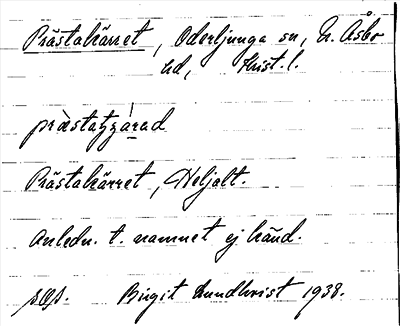 Prästakärret, Oderljunga sn, N. Åsbo
hd, Krist. l.
Prästakärret, Heljalt.
Anledn. t. namnet ej känd.
Birgit Lundkvist 1938.